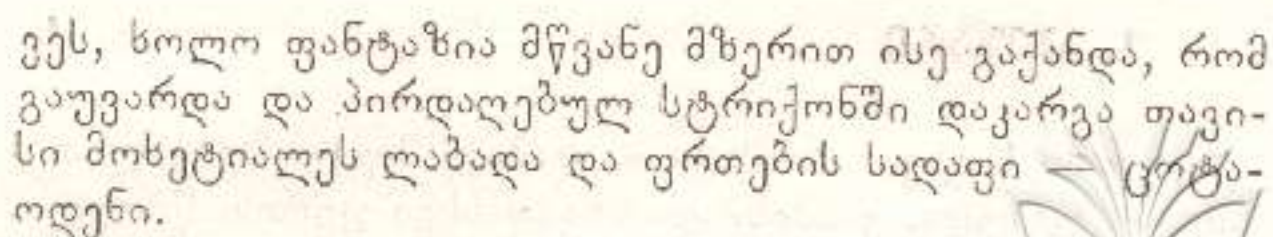 ვეს, ხოლო ფანტაზია მწვანე მზერით ისე გაქანდა, რომ
გაუვარდა და პირდაღებულ სტრიქონში დაკარგა თავი-
სი მოხეტიალეს ლაბადა და ფრთების სადაფი — ცოტა-
ოდენი.